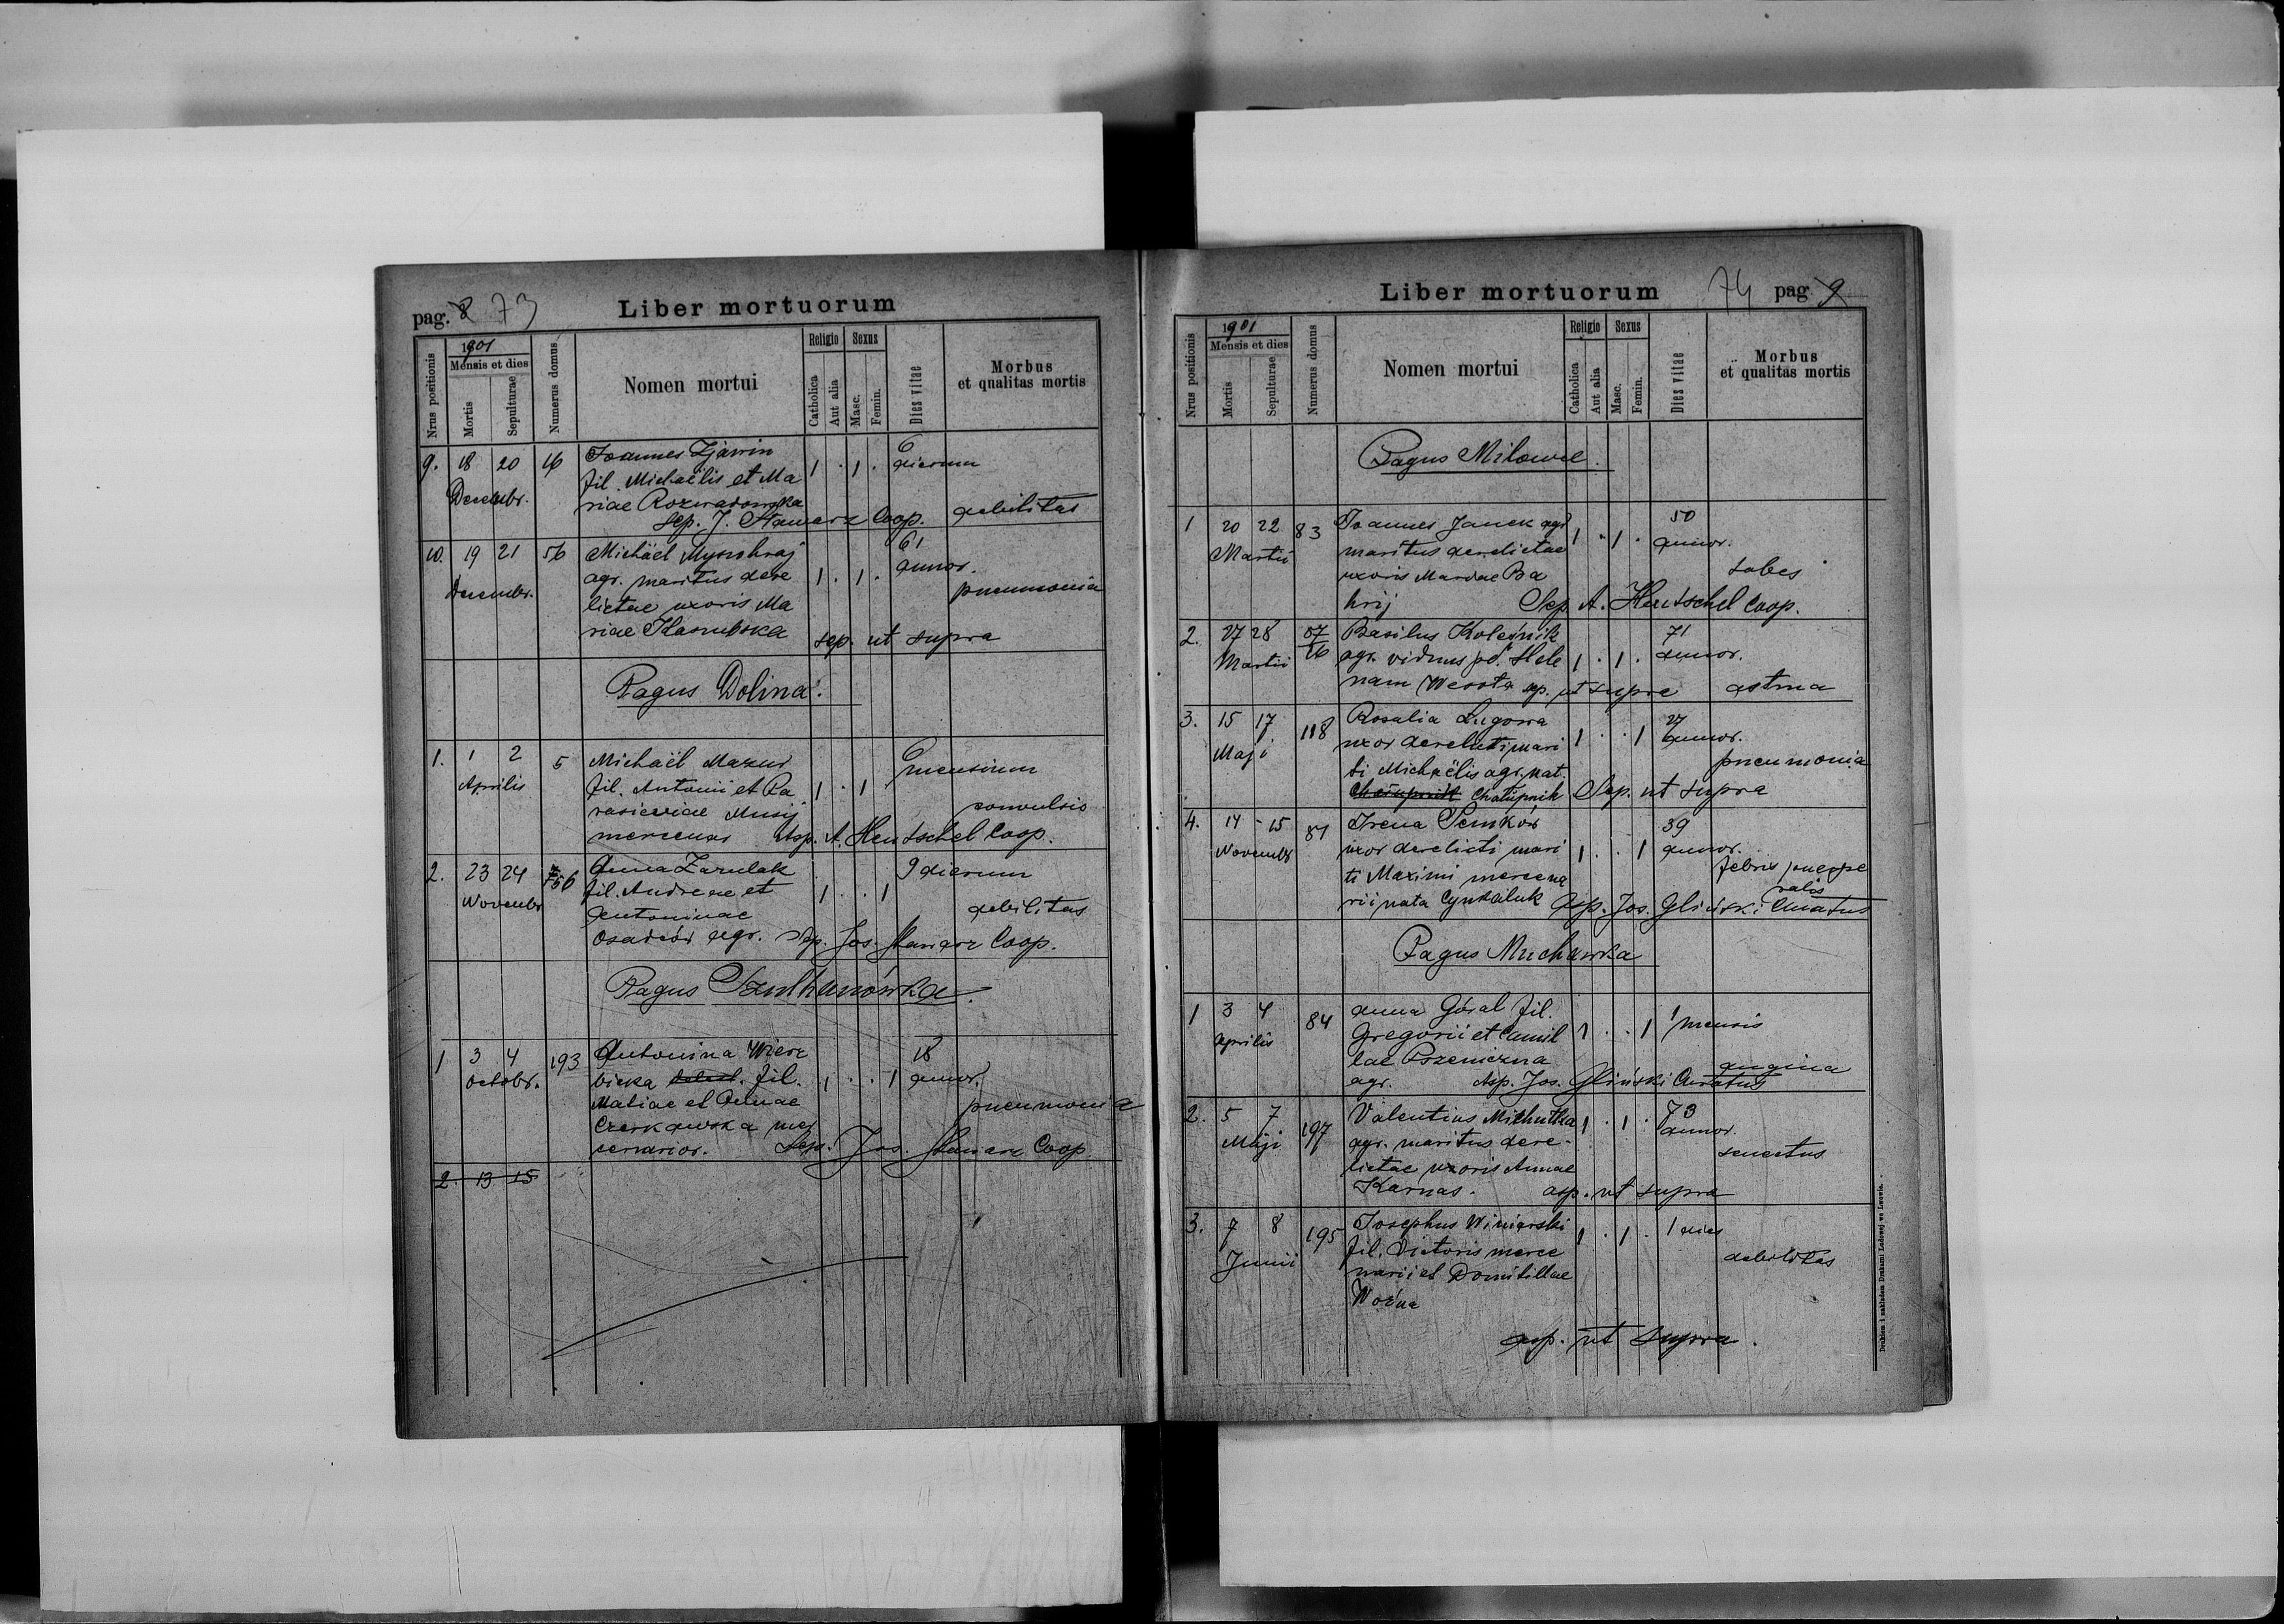 pag. 8 73
Liber mortuorum
Nrus positionis
1901
Mensis et dies
Mortis
Sepulturae
Numerus domus
Nomen mortui
Religio
Catholica
Aut alia
Sexus
Masc.
Femin.
Dies vitae
Morbus
et qualitas mortis
9. 18 20 16 Joannes Zjawin 1 . 1 . 6
Decembr. fil. Michaëlis et Ma dierum
riae Rozwadowska debilitas
sep. J. Stawarz Coop.
10. 19 21 56 Michäel 61
Decembr. agr. maritus dere 1 . 1 . annor.
lictae uxoris Ma pneumonia
riae sep. ut supra
Pagus Dolina.
1. 1 2 5 Michaël Mazur 6
Aprilis fil. Antonii et Pa 1 . 1 mensium
Musij convulsio
mercenar A. Hentschel Coop.
2. 23 24 56 Anna Zarulak 9 dierum
Novembr fil. Andreae et 1 . . 1
Antoninae debilitas
agr. Jos. Stawarz Coop.
Pagus Szulhanówka.
1 3 4 193 Antonina Wierz 18
Octobr. bicka fil. 1 . . 1 annor.
Matiae et Annae pneumonia
Czerkawska mer
cenarior. Sep. Jos. Stawarz Coop
2. 13 15
Liber mortuorum
74 pag 9
Nrus positionis
1901
Mensis et dies
Mortis
Sepulturae
Numerus domus
Nomen mortui
Religio
Catholica
Aut alia
Sexus
Masc.
Femin.
Dies vitae
Morbus
et qualitas mortis
Pagus Milowce.
1 20 22 83 Joannes Janek agr 1 . 1 . 50
Martii maritus derelictae annor.
uxoris Mariae Ba tabes
hrij Sep. A. Hentschel Coop.
2. 27 28 Basilus Koleśnik 71
Martii agr. viduus pd. Hele 1 . 1 . annor.
nam Wesota sep. ut supra astma
3. 15 17 118 Rosalia Lugowa 27
Maji uxor derelicti mari 1 . . 1 annor.
ti Michaëlis agr. nat. pneumonia
Chałupnik Sep. ut supra
4. 14 - 15 81 Irena Semków 39
Novembr uxor derelicti mari 1 . . 1 annor.
ti Maximi mercena febris puerpe
rii nata Cyndaluk ralis
Asp. Jos. Gliński Curatus
Pagus Muchawka
1 3 4 84 Anna Góral fil. 1 mensis
Aprilis Gregorii et Camil 1 . . 1
lae Pszeniczna angina
agr. Asp. Jos. Gliński Curatus
2. 5 7 197 Valentius Michułka 1 . 1 . 73
Maji agr. maritus dere- annor.
lictae uxoris Annae senectus
Karnas. asp. ut supra
3. 7 8 195 Josephus Winiarski 1 . 1 . 1 dies
Junii fil. Victoris merce debilitas
narii et Domitillae
Woźna
asp. ut supra.
Drukiem i nakładem Drukarni Ludowej we Lwowie.